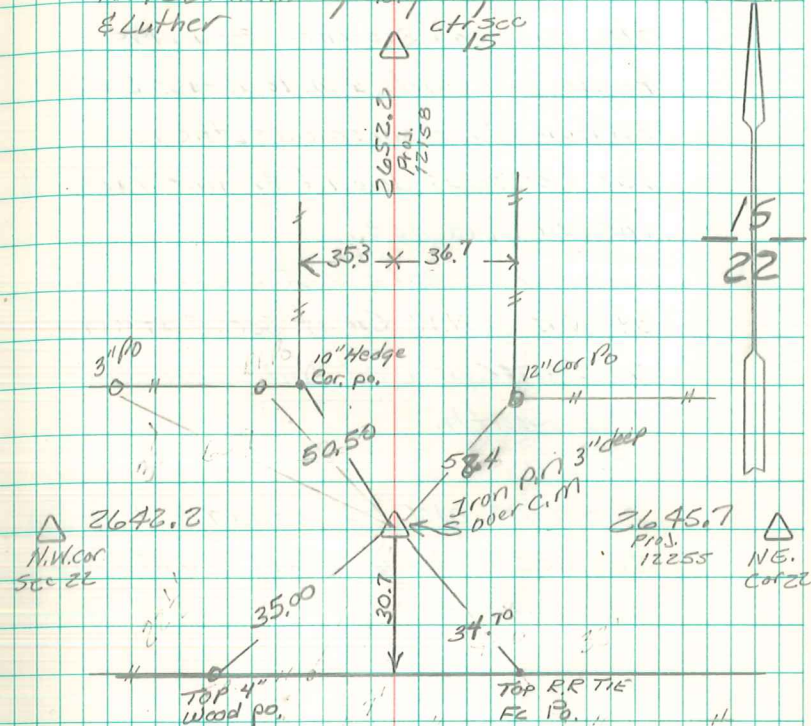 & Luther
ctr sec
15
2652.2
Proj.
12158
15
22
35.3
36.7
3" Po
10" Hedge
Cor. po.
12" Cor Po
50.50
58.4
Iron Pin 3" deep
over C.M
2642.2
N.W. cor
Sec 22
2645.7
Proj.
12255
N.E.
Cor 22
35.00
30.7
34.70
TOP 4"
Wood po.
TOP R.R TIE
Fc Po.